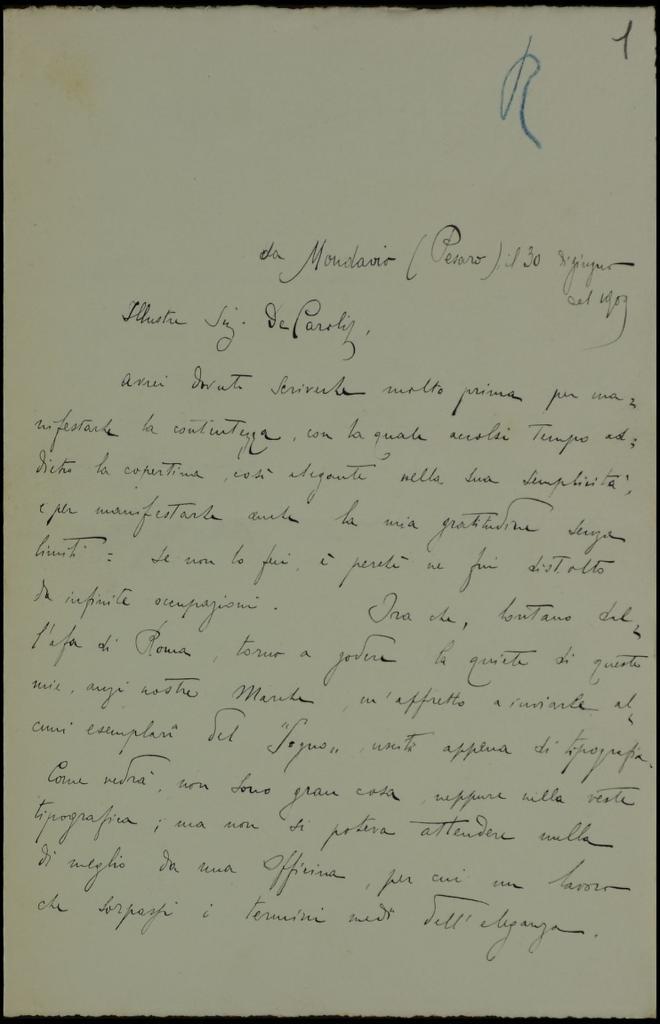 1
R
da Mondavio (Pesaro), il 30 di giugno
del 1909
Illustre Sig. De Carolis,
avrei dovuto scriverle molto prima per ma=
nifestarle la contentezza, con la quale accolsi tempo ad=
dietro la copertina, così elegante nella sua semplicità,
e per manifestarle anche la mia gratitudine senza
limiti = Se non lo feci, è perchè ne fui distolto
da infinite occupazioni. Ora che, lontano dal=
l'afa di Roma, torno a godere la quiete di queste
mie, anzi nostre Marche, m'affretto a inviarle al=
cuni esemplari del "Sogno", usciti appena di tipografia.
Come vedrà, non sono gran cosa, neppure nella veste
tipografica; ma non si poteva attendere nulla
di meglio da una Officina, per cui un lavoro
che sorpassi i termini medi dell'eleganza.